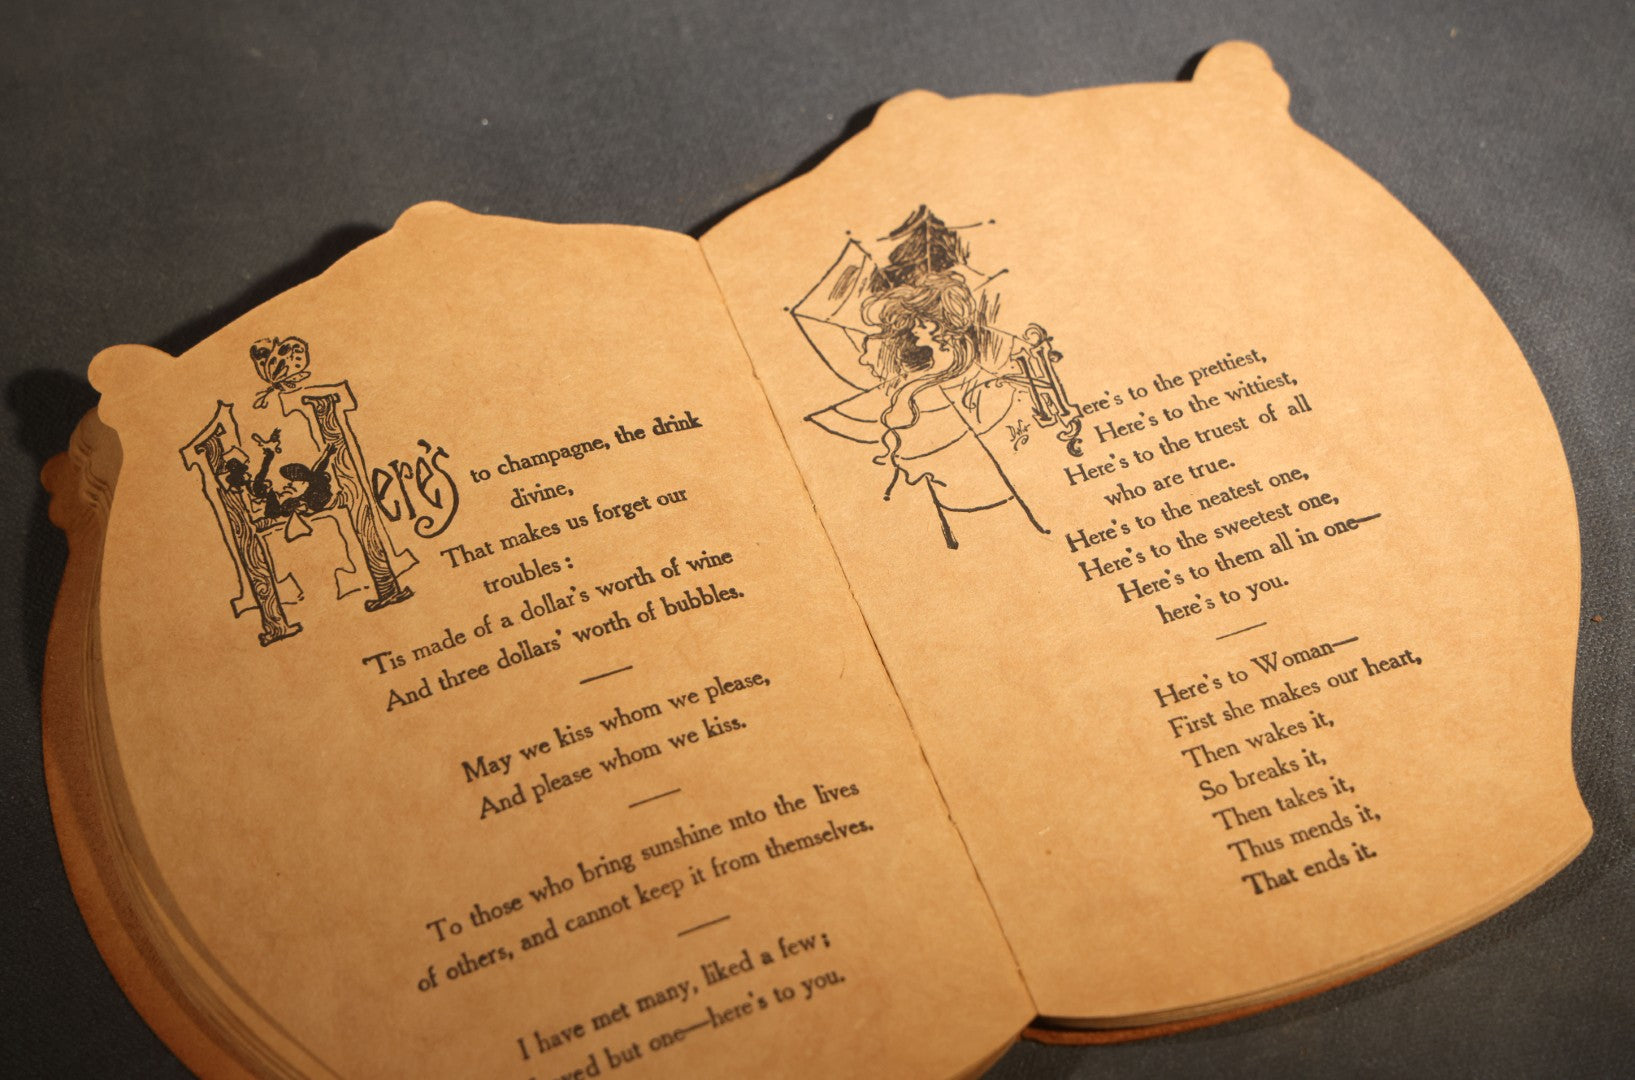 Here's to champagne, the drink
divine,
That makes us forget our
troubles:
'Tis made of a dollar's worth of wine
And three dollars' worth of bubbles.
May we kiss whom we please,
And please whom we kiss.
To those who bring sunshine into the lives
of others, and cannot keep it from themselves.
I have met many, liked a few;
but one—here's to you.
Here's to the prettiest,
Here's to the wittiest,
Here's to the truest of all
who are true.
Here's to the neatest one,
Here's to the sweetest one,
Here's to them all in one—
here's to you.
Here's to Woman—
First she makes our heart,
Then wakes it,
So breaks it,
Then takes it,
Thus mends it,
That ends it.